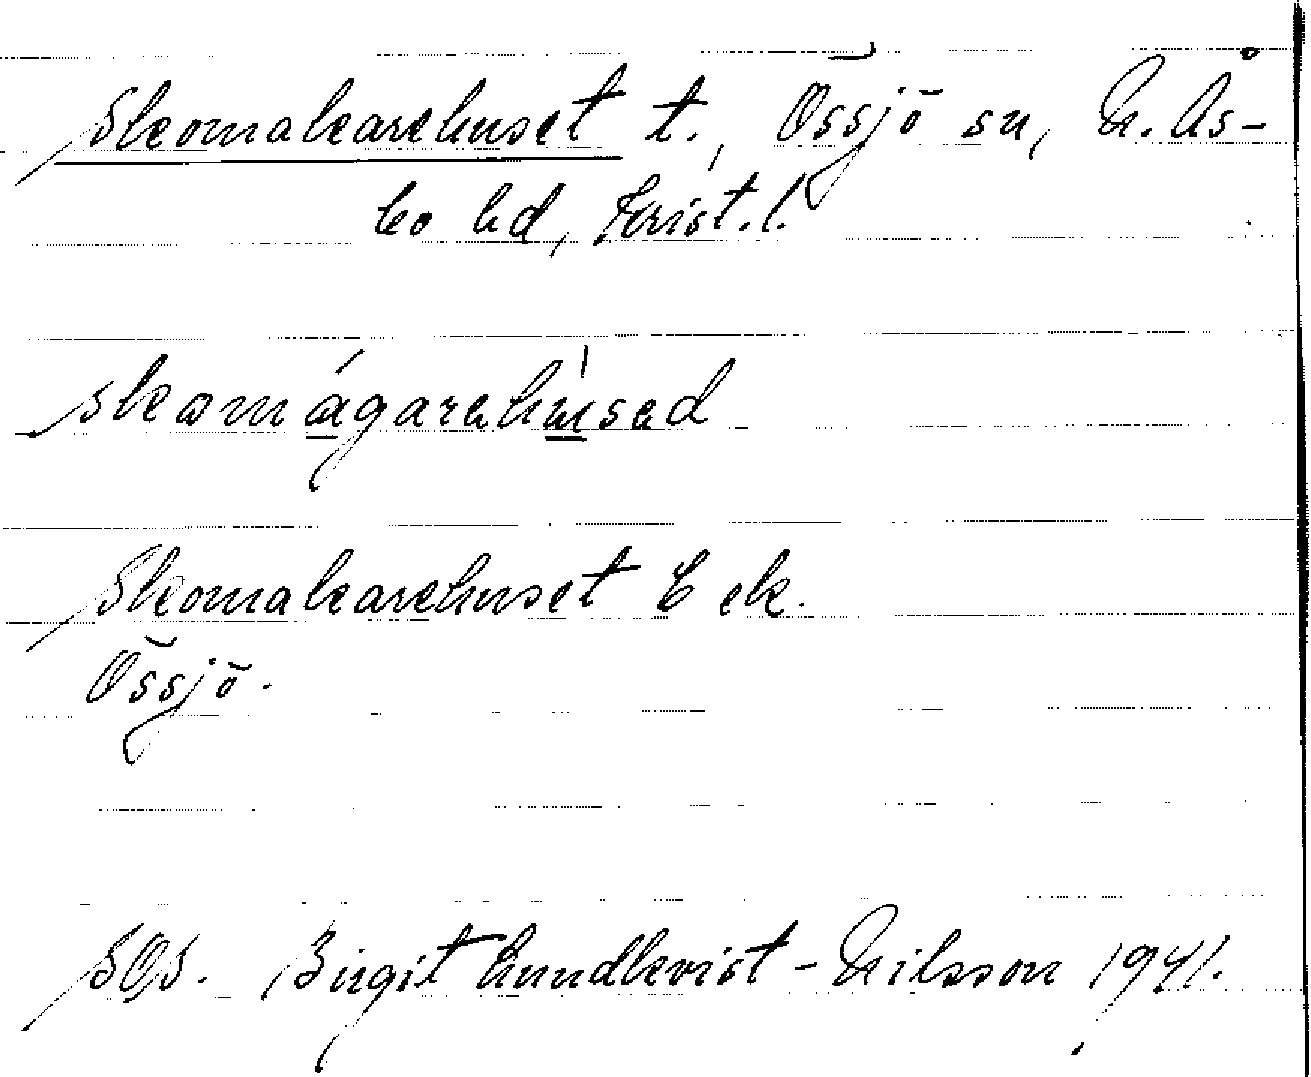 Skomakarehuset t., Össjö sn, N. Ås-
bo hd, Krist. l.
skomágarehúsed
Skomakarehuset E ek.
Össjö.
SOS. Birgit Lundkvist-Nilsson 1941.